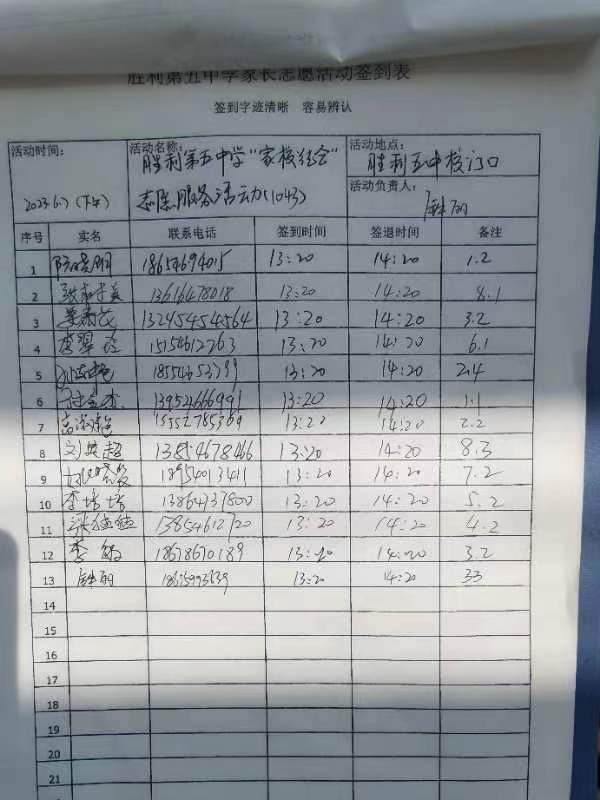 胜利第五中学家长志愿活动签到表
签到字迹清晰 容易辨认
活动时间: 活动名称: 胜利第五中学"家校结合" 活动地点: 胜利五中校门口
2023.6.7(下午) 志愿服务活动(1043) 活动负责人:
序号 实名 联系电话 签到时间 签退时间 备注
1 13:20 14:20 1.2
2 13616478018 13:20 14:20 8.1
3 13245454564 13:20 14:20 3.2
4 李翠 15154612763 13:20 14:20 6.1
5 13:20 14:20 2.4
6 13954666991 13:20 14:20 1.1
7 13:20 14:20 2.2
8 刘 超 13854678466 13:20 14:20 8.3
9 18954013411 13:20 14:20 7.2
10 李培培 13864737800 13:20 14:20 5.2
11 13854612720 13:20 14:20 4.2
12 李敏 18678670189 13:20 14:20 3.2
13 13:20 14:20 33
14
15
16
17
18
19
20
21